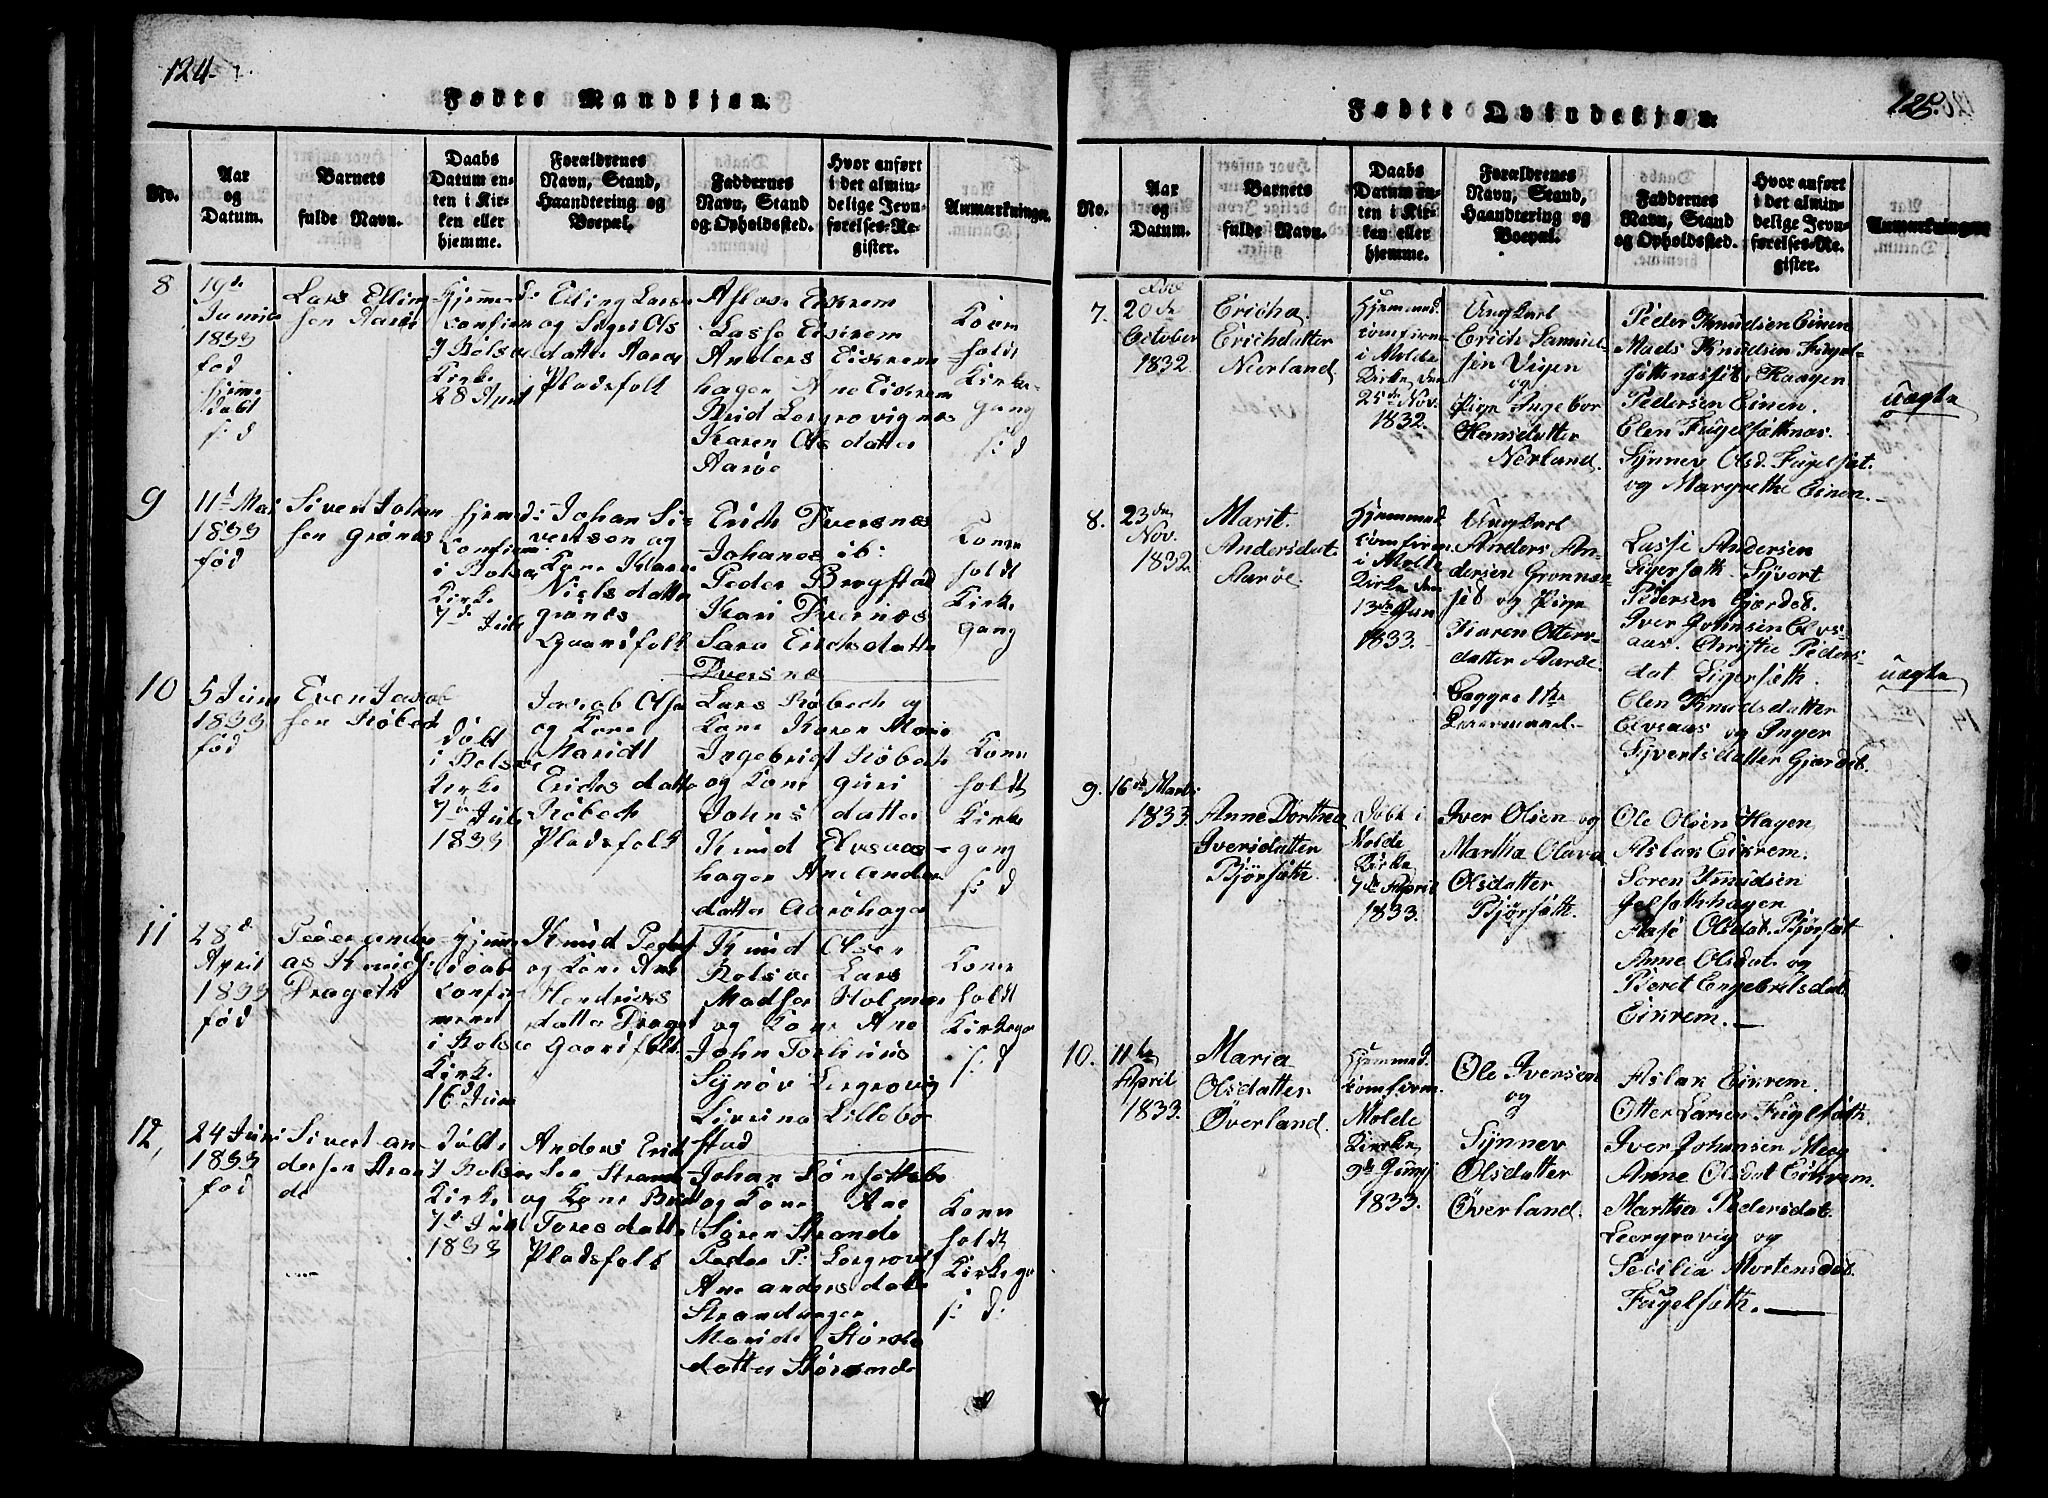 124
Fødte Mandkjøn.
No.
Aar
og
Datum.
Barnets
fulde Navn.
Daabs
Datum en-
ten i Kir-
ken eller
hjemme.
Forældrenes
Navn, Stand,
Haandtering og
Boepæl.
Faddernes
Navn, Stand
og Opholdssted.
Hvor anført
i det almin-
delige Jevn-
førelses-Re-
gister.
Anmærkninger.
8
19de
Junii
1833
fød
hjeme
døbt
s: d
Lars Elling
sen Aarøe
Hjemmed:
confirm
I Bolsø
Kirke
28 April
Elling Larse
og Sigri Ols
datter Aarøe
Pladsfolk
Aslase Eikrem
Lasse Eikrem
Anders Eikrem
hagen Ane Eikrem
Brid Lergrovignes
Karen Ols datter
Aarøe
Konn
holdt
Kirke-
gang
s: d
9
11d Mai
1833
fød
Sivert Johan
sen Grønes
hjemd:
Confirm:
i Bolsø
Kirke
7de Juli
Johan Si-
vertsen og
Kone Kara
Niels datte
grønes
Gaardfolk
Erich Tversnes
Johanes ib:
Peder Bergstad
Kari Tvernæs
Sara Erichsdatte
Tversnæ
Konn
holdt
Kirke
gang
10
5 Juni
1833
fød
Even Jacob
sen Røbech
døbt
i Bolsøe
Kirke
7de Juli
1833
Jacob Olse
og Kone
Maridt
Erichs datte
Røbech
Pladsfolk
Lars Røbech og
Kone Karen Marie
Ingebrigt Røbech
og Kone Guri
Johns datter
Knud Elvsaas-
hagen Ane Ander
datter Aarøhagen
Konn
holdt
Kirke
gang
s: d
11
28d
April
1833
fød
Peder andre
as Knuds
Drageth
Hjemme
døbt
Confir
meret
i Bolsøe
Kirke
16d Juni
Knud Peders
og Kone Ane
Hendrichs
datter Draget
Gaardfolk
Knud Olsen
Bolsøe Lars
Madsen Holmen
og Kone Ane
John Torhuus
Synøv Lergrovig
Livrina Lillebo
stad
Konn
holdt
Kirkega
s: d
12,
24 Juni
1833
fød
Sivert an-
dersen Stran
de
døbt
I Bolsø
Kirke
7de Juli
1833
Anders Erich
sen Strande
og Kone Brid
Tores datte
Pladsfolk
Johan Sørsettebø
og Kone Ane
Søren Strande
Peder P: Lergrovig
Ane anders datte
Strandhagen
Maride Størde
datter Størende
Konn
holdt
Kirkega
s: d:
125.
Fødte Qvindekjøn.
No.
Aar
og
Datum.
Barnets
fulde Navn.
Daabs
Datum en-
ten i Kir-
ken eller
hjemme.
Forældrenes
Navn, Stand,
Haandtering og
Boepæl.
Faddernes
Navn, Stand
og Opholdssted.
Hvor anført
i det almin-
delige Jevn-
førelses-Re-
gister.
Anmærkninger
7.
20de
October
1832.
Ericha
Erichdatter
Nerland
Hjemmed.
comfirm.
i Molde
Kirke den
25de Nov.
1832.
Ungkarl
Erich Samuel-
sen Vigen
og
Pige Ingebor
Hansdatter
Nerland.
Peder Knudsen Einen
Mads Knudsen Fugel-
sætnesset, Haagen
Pedersen Einen.
Elen Fugelsætnes.
Synnev Olsd. Fugelsæt.
og Margrethe Einen.
uægte
8.
23de
Nov.
1832.
Marit.
Andersdat
Aarøe.
Hjemmed
comfirm.
i Molde
Kirke den
13de Jan
1833.
Ungkarl
Anders An-
dersen Grønnes
set og Pige
Karen Otters-
datter Aarøe.
Begges 1te
Leiermaal.
Lasse Andersen
Sigersæth. Syvert
Pedersen Gjærdet.
Iver Johnsen Elvs-
aas. Christie Peders-
dat Sigersæth.
Elen Knudsdatter
Elvsaas og Inger
Syvertsdatter Gjærdet.
uægte
9.
16de Marts
1833.
Anne Dorthea
Iversdatter
Bjørsæth.
Døbt i
Molde
Kirke
7de April
1833.
Iver Olsen og
Martha Olava
Olsdatter
Bjørsæth.
Ole Olsen Hagen
Aslak Eikrem.
Søren Knudsen
Jelsethhagen
Aase Olsdat. Bjørsæt
Anne Olsdat. og
Beret Engebretsdat
Eikrem.
10.
11te
April
1833.
Maria
Olsdatter
Överland.
Hjemmed.
comfirm.
Molde
Kirke
9de Junii
1833.
Ole Iversen
og
Synnev
Olsdatter
Överland.
Aslak Eikrem.
Otter Larsen Fugelsæth.
Iver Johansen Meeg
Anne Olsdat Eikrem.
Martha Pedersdat.
Leergrovig og
Secilia Mortensdat.
Fugelsæth.